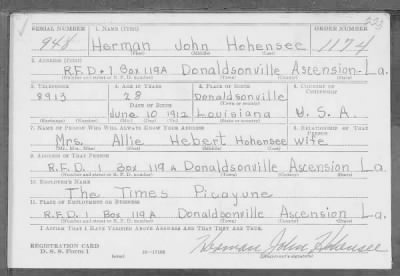 SERIAL NUMBER 1. NAME (Print) ORDER NUMBER
948 Herman John Hohensee 1174
(First) (Middle) (Last)
2. ADDRESS (Print)
R.F.D # 1 Box 119A Donaldsonville Ascension La.
(Number and street or R. F. D. number) (Town) (County) (State)
3. TELEPHONE 4. AGE IN YEARS 5. PLACE OF BIRTH 6. COUNTRY OF CITIZENSHIP
8913 28 Donaldsonville
DATE OF BIRTH (Town or county)
June 10 1912 Louisiana U.S.A.
(Exchange) (Number) (Mo.) (Day) (Yr.) (State or country)
7. NAME OF PERSON WHO WILL ALWAYS KNOW YOUR ADDRESS 8. RELATIONSHIP OF THAT PERSON
Mrs. Allie Hebert Hohensee wife
(Mr., Mrs., Miss) (First) (Middle) (Last)
9. ADDRESS OF THAT PERSON
R.F.D. 1 Box 119A Donaldsonville Ascension La.
(Number and street or R. F. D. number) (Town) (County) (State)
10. EMPLOYER'S NAME
The Times Picayune
11. PLACE OF EMPLOYMENT OR BUSINESS
R.F.D. 1 Box 119A Donaldsonville Ascension La.
(Number and street or R. F. D. number) (Town) (County) (State)
I AFFIRM THAT I HAVE VERIFIED ABOVE ANSWERS AND THAT THEY ARE TRUE.
REGISTRATION CARD
D. S. S. Form 1 Herman John Hohensee
(Registrant's signature)